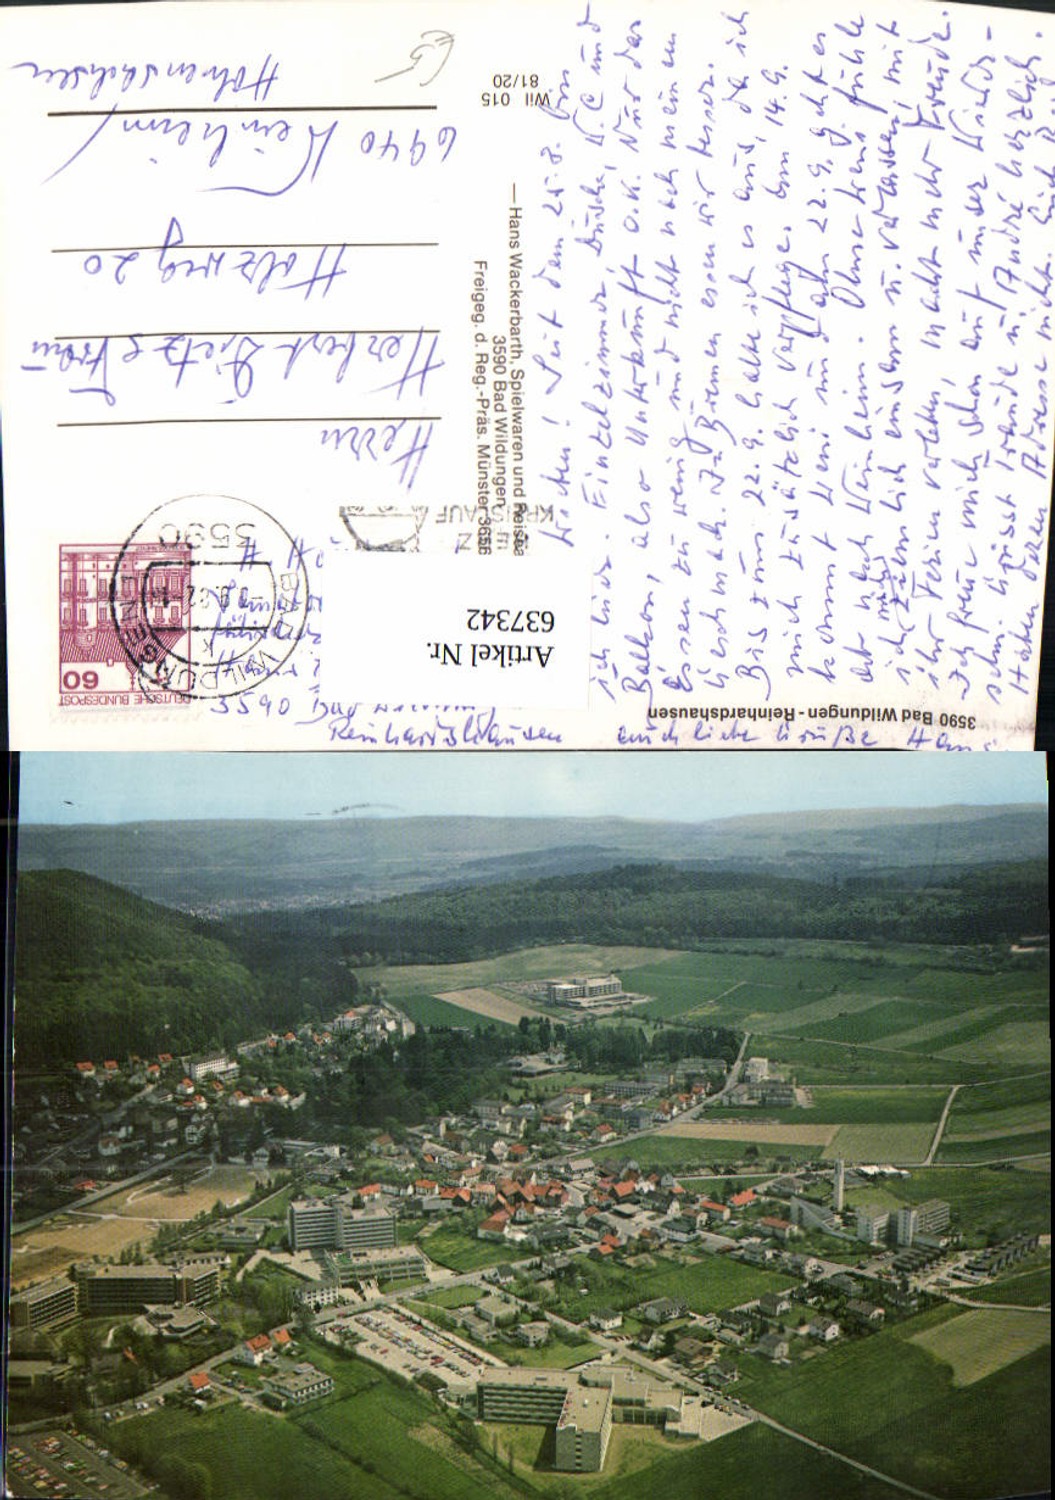 3590 Bad Wildungen - Reinhardshausen
Artikel Nr.
637342
Wil 015
81/20
— Hans Wackerbarth, Spielwaren und
3590 Bad Wildungen
Freigeg. d. Reg.-Präs. Münster
DEUTSCHE BUNDESPOST
60
3590
BAD WILDUNGEN 1
K
KREISLAUF
Z
Herrn
Herbert Dietz & Frau
Holzweg 20
6940 Weinheim /
Hohensachsen
Seit dem 25.8. bin
ich hier. Einzelzimmer, Dusche, W.C und
Balkon, also Unterkunft o.K. Nur das
Essen zu wenig und nicht nach meinem
Geschmack. In Bremen essen wir besser.
Bis zum 22.9. halte ich es aus, da ich
mich zusätzlich verpflege. Am 14.9.
kommt Heni und am 22.9. geht es
ab nach Weinheim. Ohne Heni fühle
ich mich ziemlich einsam u. verlassen, mit
ihr Ferien verleben, macht mehr Freude.
Ich freue mich schon auf unser Wieder-
sehn. Grüsst Traude u. André herzlich.
Haben deren Adresse nicht.
3590 Bad
Reinhardshausen
auch liebe Grüße